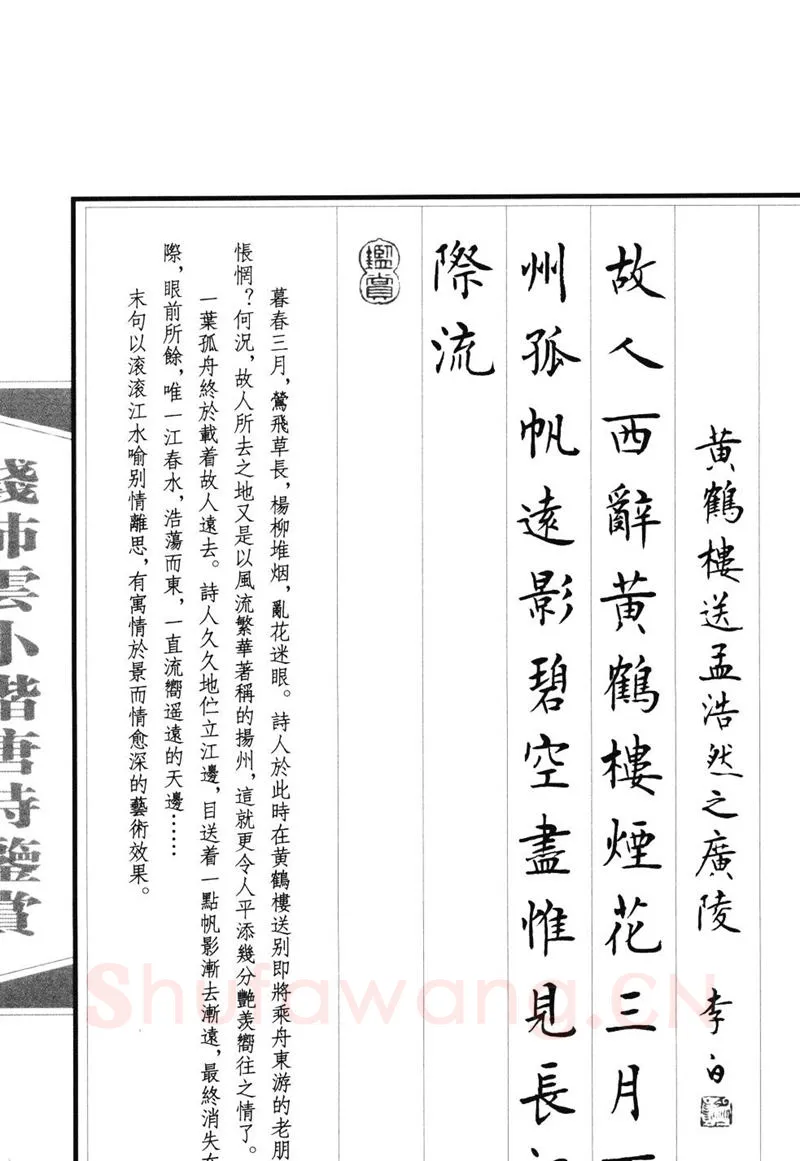 黄鶴樓送孟浩然之廣陵 李白
故人西辭黄鶴樓煙花三月
州孤帆遠影碧空盡惟見長
際流
鑑賞
暮春三月，鶯飛草長，楊柳堆烟，亂花迷眼。詩人於此時在黄鶴樓送别即將乘舟東游的老朋
悵惘？何況，故人所去之地又是以風流繁華著稱的揚州，這就更令人平添幾分艷羡嚮往之情了。
一葉孤舟終於載着故人遠去。詩人久久地伫立江邊，目送着一點帆影漸去漸遠，最終消失在
際，眼前所餘，唯一江春水，浩蕩而東，一直流嚮遥遠的天邊……
末句以滚滚江水喻别情離思，有寓情於景而情愈深的藝術效果。
雲小楷唐詩鑒賞
Shufawang.CN